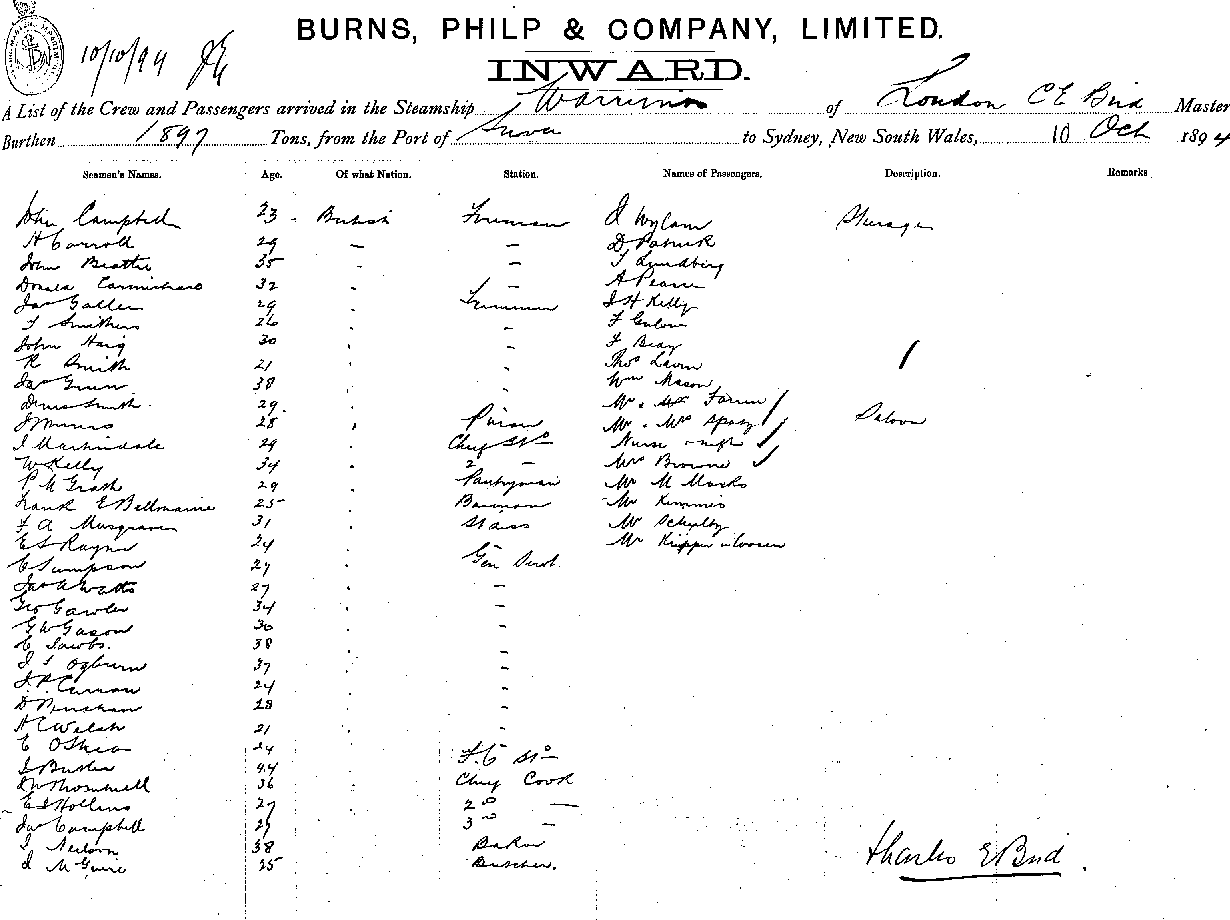 10/10/94
BURNS, PHILP & COMPANY, LIMITED.
INWARD.
A List of the Crew and Passengers arrived in the Steamship Warrimoo of London C E Bird Master
Burthen 1897 Tons, from the Port of Suva to Sydney, New South Wales, 10 Oct 1894
Seamen's Names. Age. Of what Nation. Station. Names of Passengers. Description. Remarks
John Campbell 23 British Fireman J Wylam Steerage
H Carroll 29 — — D Patrick
John Beattie 35 — T Lundberg
Donald Carmichael 32 — A Pearce
Jas 29 Trimmer J H Kelly
T Smithers 26 F
John Haig 30 F Beay
R Smith 21 Thos Lavin
Jas Gunn 38 Wm Mason
Denis Smith 29 Mr & Mrs
J Munro 28 Mr & Mrs Saloon
J Martindale 29 Chief Std Nurse
W Kelly 34 2 — Mrs Browne
P McGrath 29 Pantryman Mr M Marks
Frank E Bellmaine 25 Barman Mr Kimmis
F A Musgrave 31 Mr
E S Rayne 24 Mr
C Simpson 27 Gen Servt.
Jas A Watts 27 —
Geo Gawler 34 —
G W Gason 30 -
C Jacobs. 38 -
J S Ogburn 37 -
J. P. Curran 24 -
D 28 -
H C Welsh 21 -
E O'Shea 24 F.C. Std
J Butler 44
Thornhill 36 Chief Cook
E J Hollins 27 2nd —
Jas Campbell 27 3rd —
J Neilson 38 Baker
J McGuire 25 Butcher.
Charles E Bird